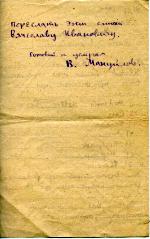 Переслать эти стихи
Вячеславу Ивановичу.
Готовый к услугам
В. Мануйлов.